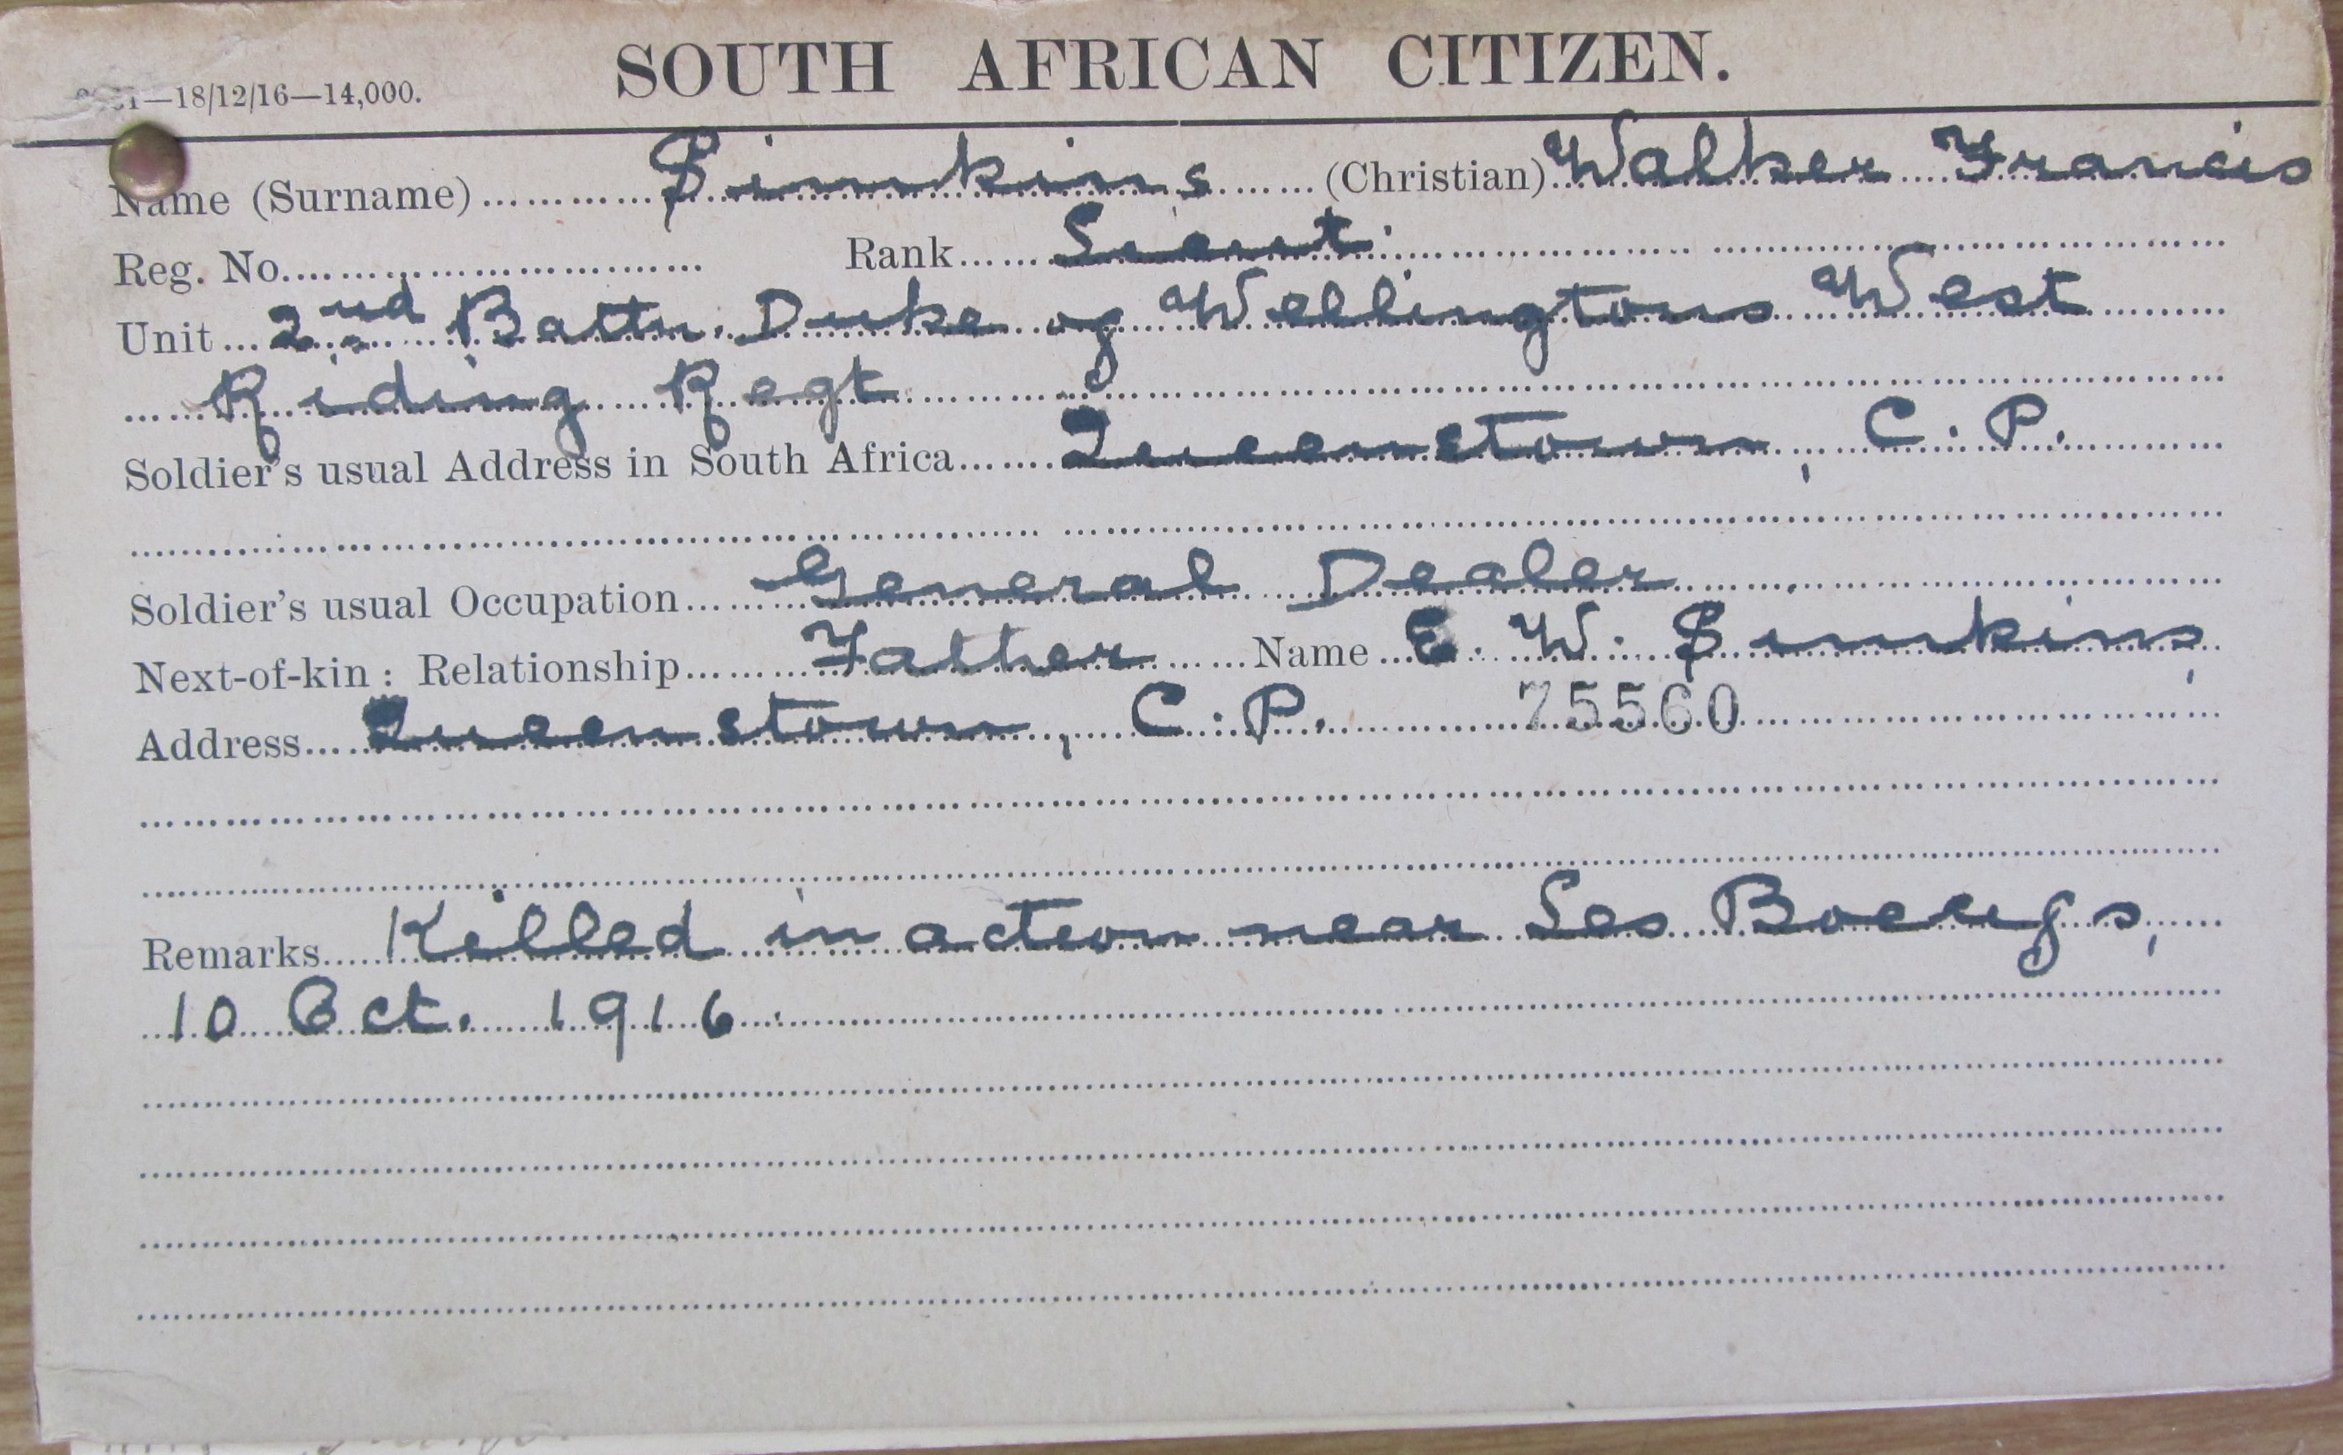 SOUTH AFRICAN CITIZEN.
—18/12/16—14,000.
Name (Surname) Simkins (Christian) Walker Francis
Reg. No. Rank Lieut.
Unit 2nd Battn. Duke of Wellingtons West
Riding Regt
Soldier's usual Address in South Africa Queenstown, C.P.
Soldier's usual Occupation General Dealer
Next-of-kin: Relationship Father Name E. W. Simkins,
Address Queenstown, C.P. 75560
Remarks Killed in action near Les Boeufs,
10 Oct. 1916.